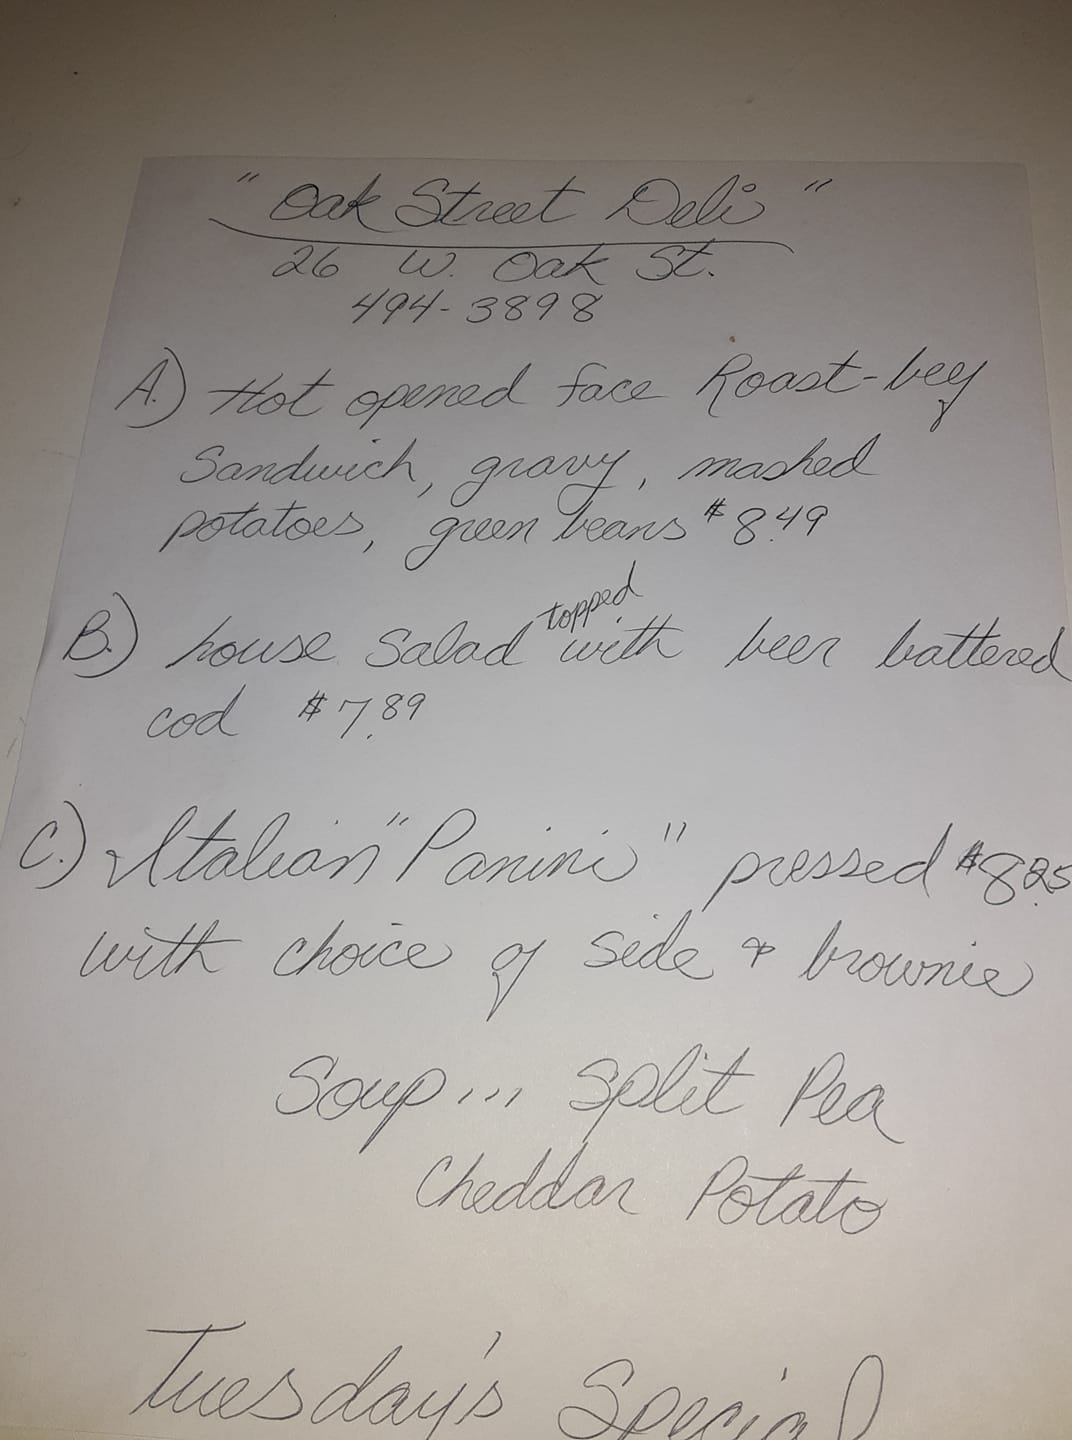 "Oak Street Deli"
26 W. Oak St.
494-3898
A.) Hot opened face Roast-beef
Sandwich, gravy, mashed
potatoes, green beans $8.49
B.) house Salad topped with beer battered
cod $7.89
C.) Italian "Panini" pressed $8.25
with choice of side & brownie
Soup... Split Pea
Cheddar Potato
Tuesday's Special